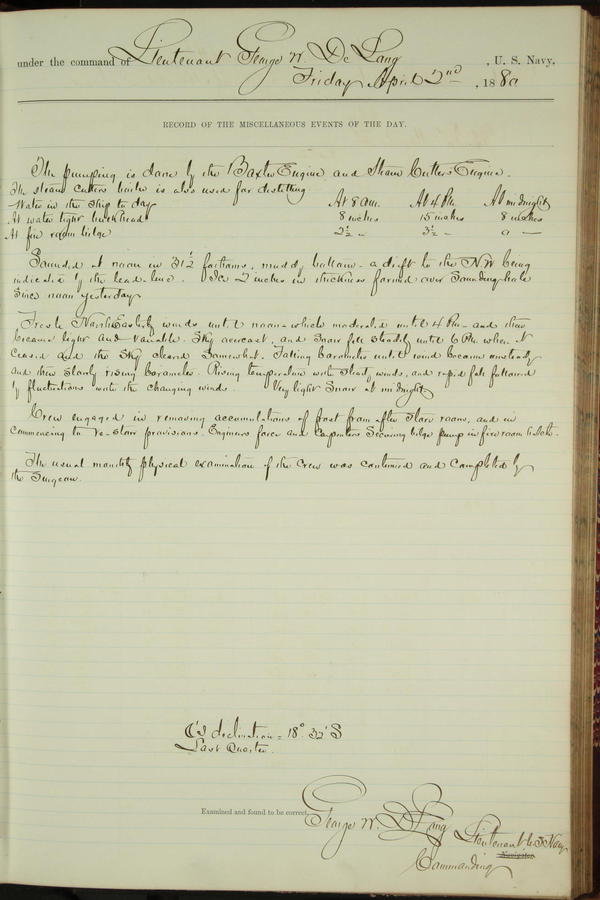 under the command of Lieutenant George W. De Long , U. S. Navy,
Friday April 2nd , 1880
RECORD OF THE MISCELLANEOUS EVENTS OF THE DAY.
The pumping is done by the Baxter Engine and Steam Cutters Engine.
The steam cutters boiler is also used for distilling.
Water in the ship to day At 8 am. At 4 Pm. At midnight
At water tight bulkhead 8 inches 15 inches 8 inches
At fire room bilge 2½ " 3½ "
Sounded at noon in 31½ fathoms, muddy bottom - a drift to the N.W. being
indicated by the lead-line. Ice 2 inches in thickness formed over Sounding hole
since noon yesterday
Fresh North Easterly winds until noon - which moderated until 4 Pm - and then
became light and variable. Sky overcast and Snow fell steadily until 6 Pm when it
ceased and the Sky cleared Somewhat. Falling barometer until wind became unsteady
and then slowly rising barometer. Rising temperature with Easterly winds, and rapid fall followed
by fluctuations with the changing winds. Very light Snow at midnight
Crew engaged in removing accumulations of frost from after Store room, and in
commencing to re-stow provisions. Engineers force and Carpenters Securing bilge pump in fire room
The usual monthly physical examination of the Crew was continued and completed by
the Surgeon.
☾'s declination = 18° 32' S
Last Quarter.
Examined and found to be correct.
George W. De Long Lieutenant U.S. Navy
Navigator.
Commanding